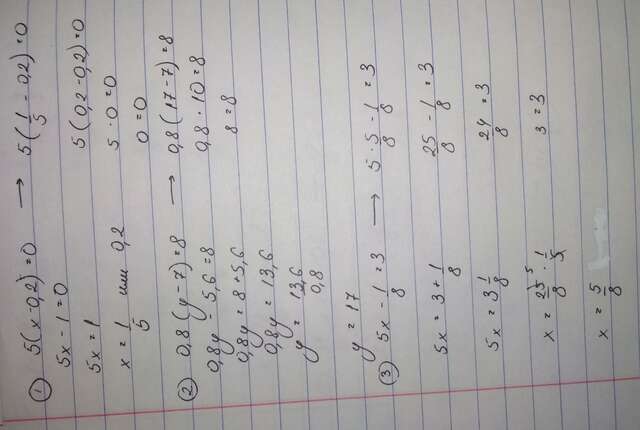 ① 5(x-0,2)=0 → 5(1/5 - 0,2)=0
5x-1=0 5(0,2-0,2)=0
5x=1 5·0=0
x=1/5 или 0,2 0=0
② 0,8(y-7)=8 → 0,8(17-7)=8
0,8y-5,6=8 0,8·10=8
0,8y=8+5,6 8=8
0,8y=13,6
y=13,6/0,8
y=17
③ 5x-1/8=3 → 5·5/8-1/8=3
5x=3+1/8 25/8-1/8=3
5x=3 1/8 24/8=3
x=25 5/8·1/5 3=3
x=5/8